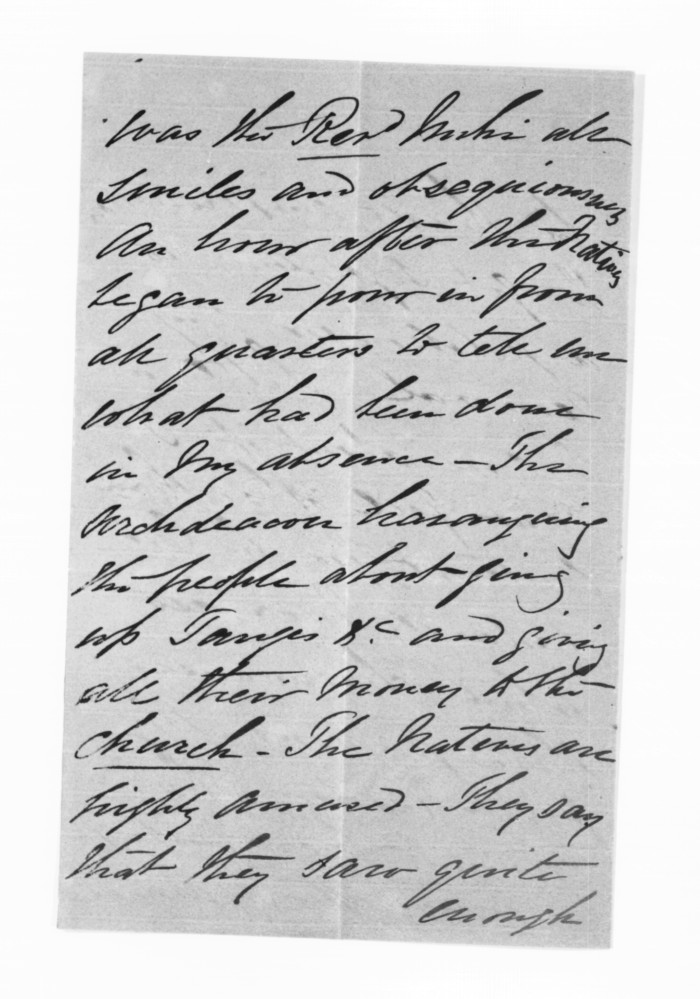 was the Revd Mulu all
smiles and obsequiousness
An hour after the Natives
began to pour in from
all quarters to tell me
what had been done
in my absence - The
Archdeacon haranguing
the people about giving
up Tangis &c and giving
all their money to the
church - The Natives are
highly amused - They say
that they saw quite
enough